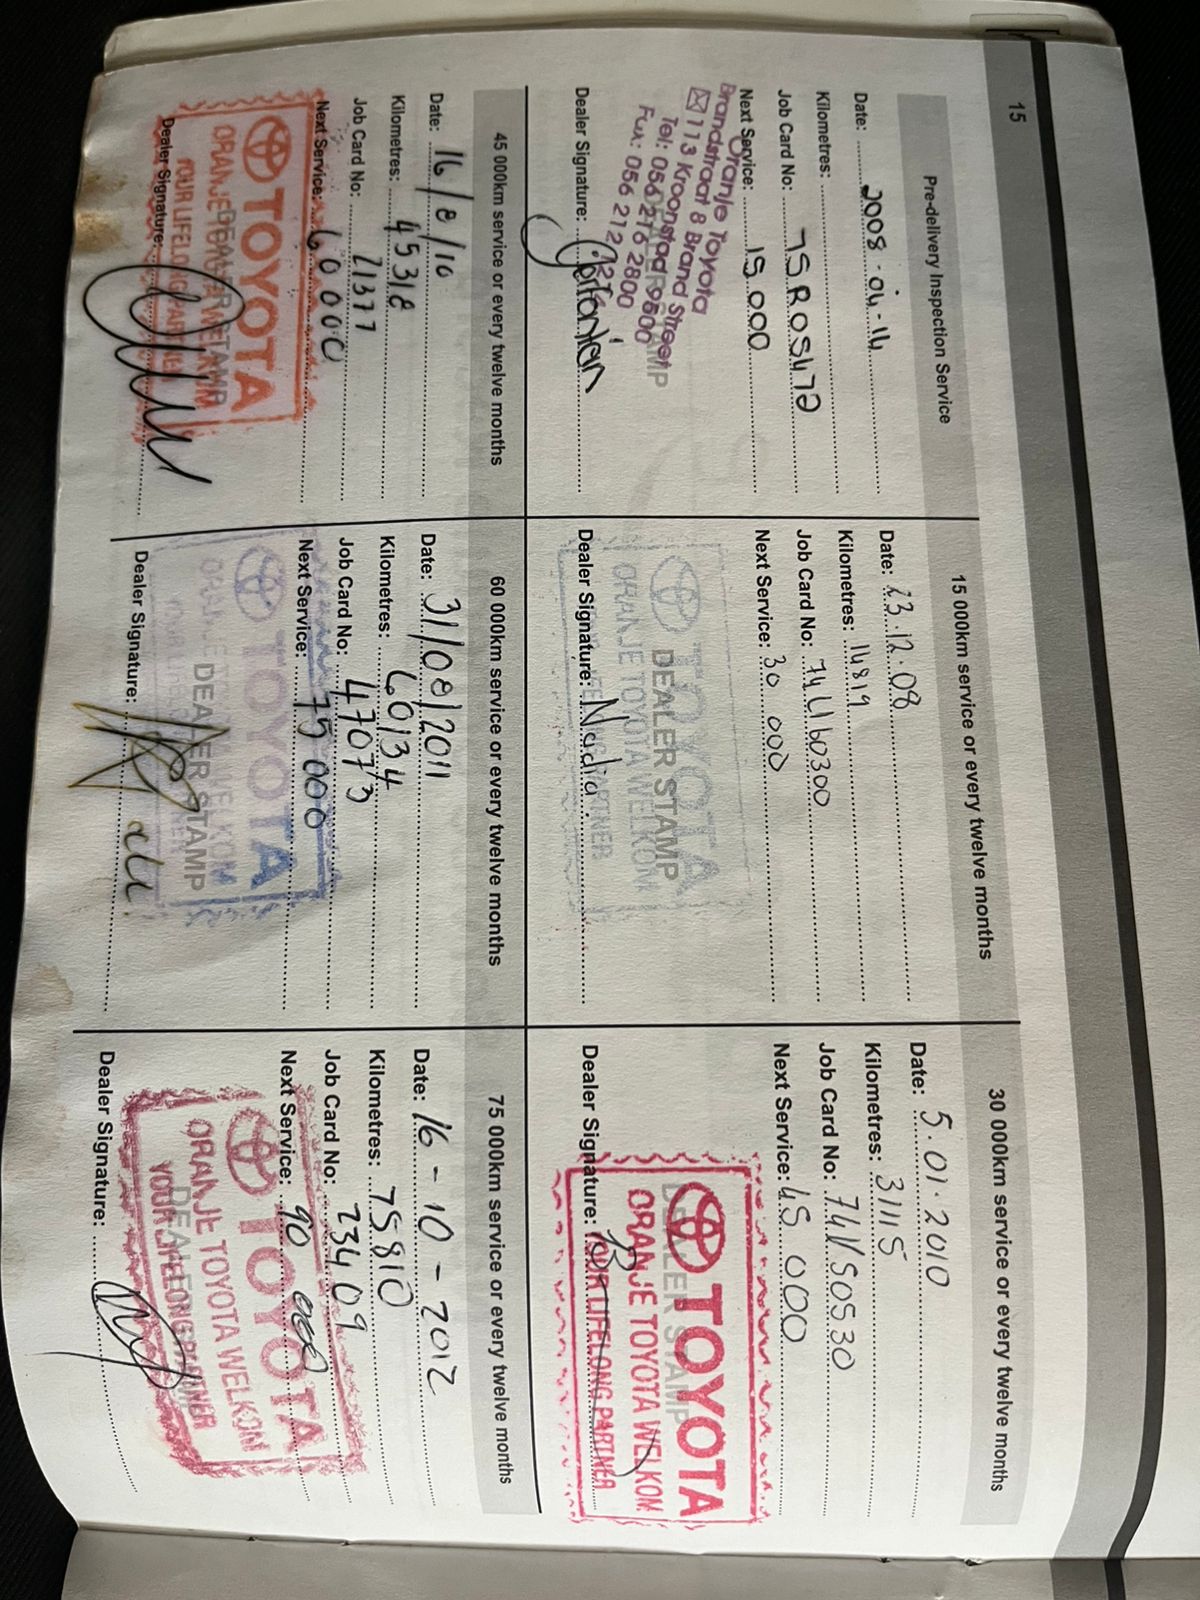 15
Pre-delivery Inspection Service
Date: 2008-04-14
Kilometres:
Job Card No: 75R05472
Next Service: 15 000
Oranje Toyota
Brandstraat 8 Brand Street
113 Kroonstad 9500
Tel: 056 216 2800
Fax: 056 212
DEALER STAMP
Dealer Signature:
15 000km service or every twelve months
Date: 23.12.08
Kilometres: 14819
Job Card No:
Next Service: 30 000
TOYOTA
DEALER STAMP
ORANJE TOYOTA WELKOM
YOUR LIFELONG PARTNER
Dealer Signature: Nadia
30 000km service or every twelve months
Date: 5.01.2010
Kilometres: 31115
Job Card No: 74VS0530
Next Service: 45 000
TOYOTA
DEALER STAMP
ORANJE TOYOTA WELKOM
YOUR LIFELONG PARTNER
Dealer Signature:
45 000km service or every twelve months
Date: 16/8/10
Kilometres: 45318
Job Card No: 21377
Next Service: 60000
TOYOTA
DEALER STAMP
ORANJE TOYOTA WELKOM
YOUR LIFELONG PARTNER
Dealer Signature:
60 000km service or every twelve months
Date: 31/08/2011
Kilometres: 60134
Job Card No: 47073
Next Service: 75 000
TOYOTA
DEALER STAMP
WELKOM
Dealer Signature:
75 000km service or every twelve months
Date: 16-10-2012
Kilometres: 75810
Job Card No: 23409
Next Service: 90 000
TOYOTA
ORANJE TOYOTA WELKOM
DEALER STAMP
YOUR LIFELONG PARTNER
Dealer Signature: